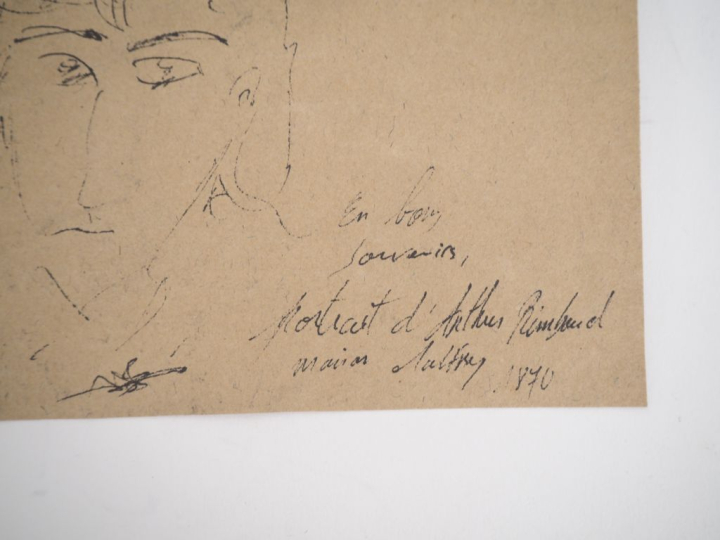 En bons
souvenirs,
Portrait d'Arthur Rimbaud
maison
1870